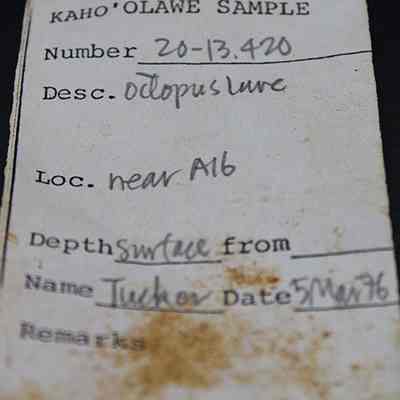 KAHO'OLAWE SAMPLE
Number 20-13.420
Desc. octopus lure
Loc. near A16
Depth surface from
Name Tucker Date 5 Mar 76
Remarks